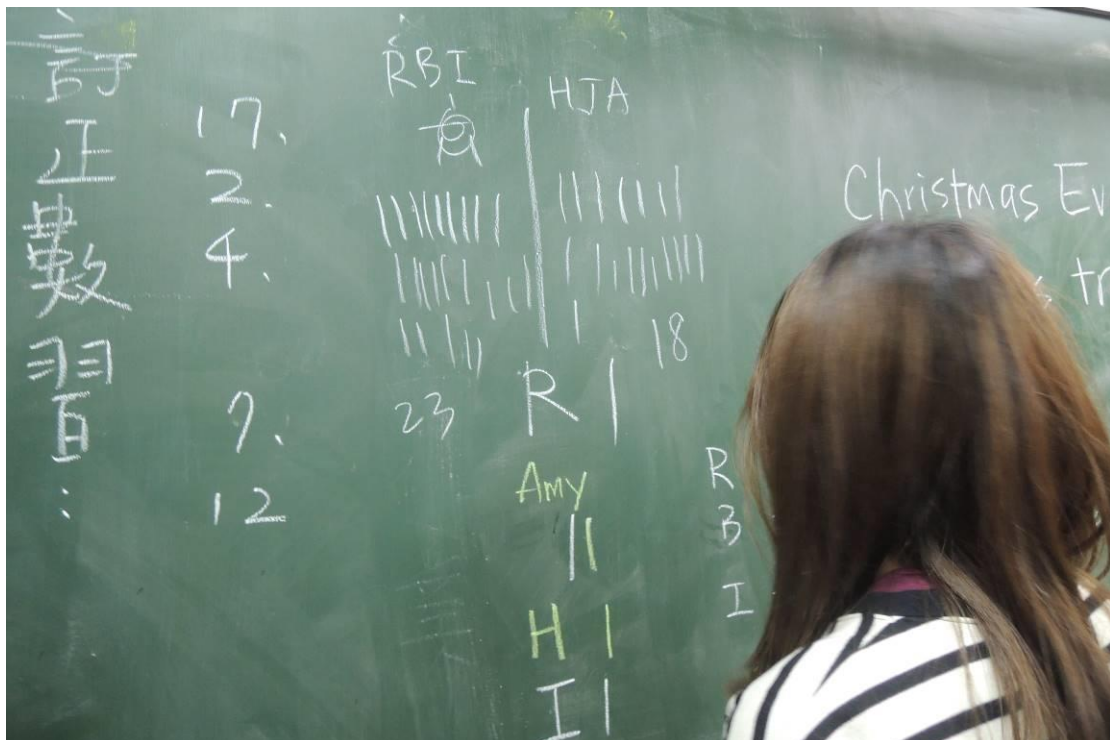 訂正數習:
17.
2.
4.
7.
12
RBI
HJA
23
18
R |
Amy ||
H |
I |
RBI
Christmas Ev
tr